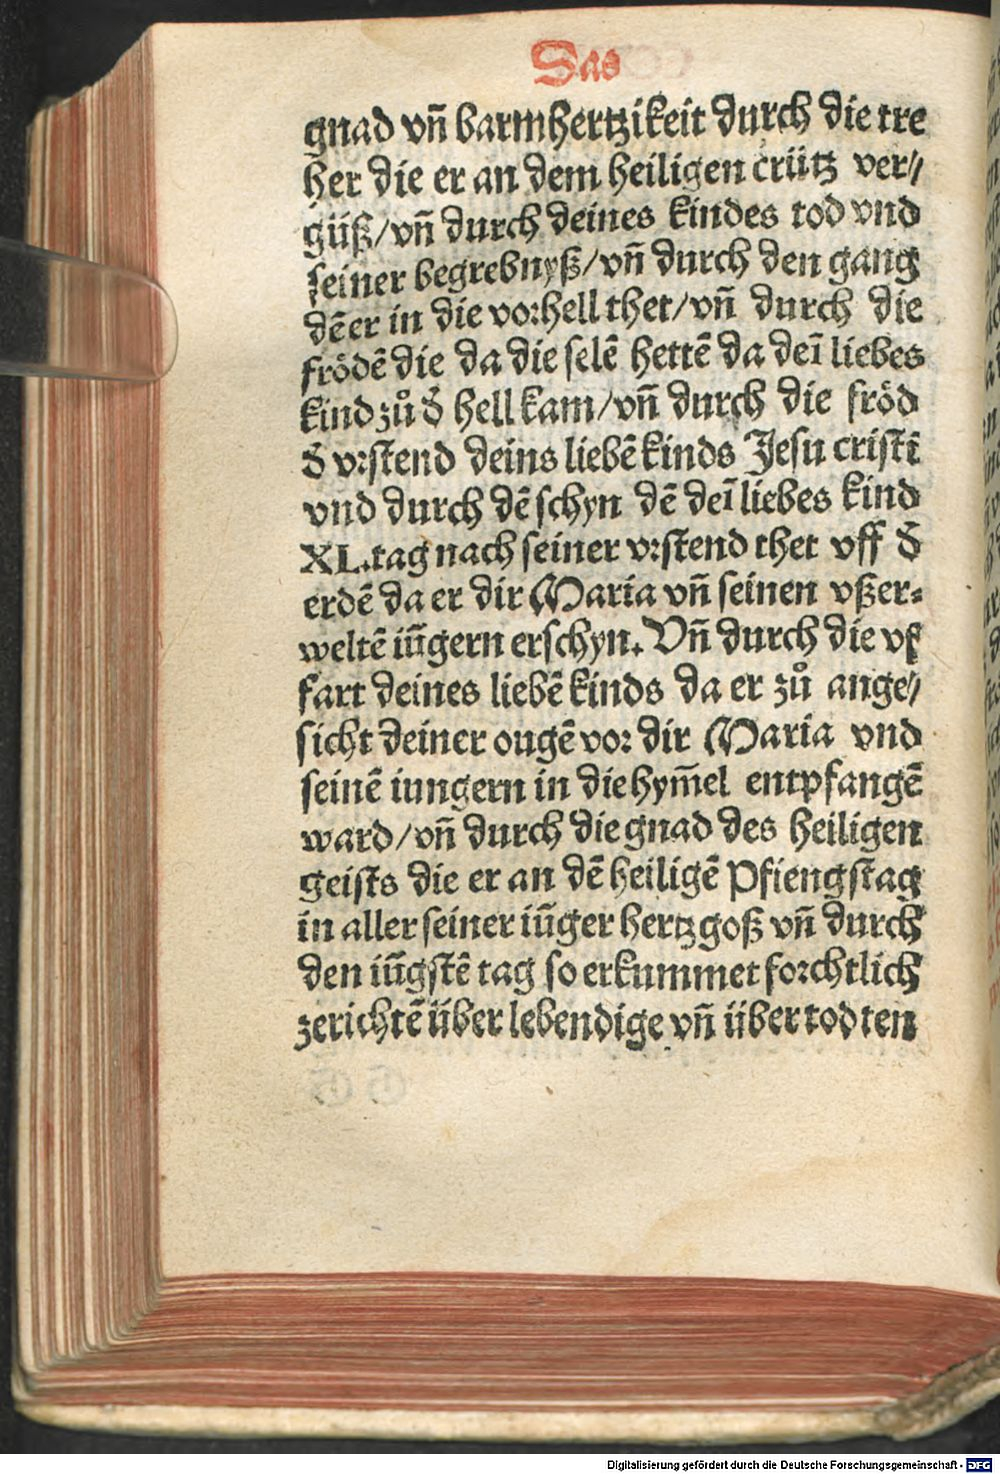 Das
gnad vñ barmhertzikeit durch die tre
her die er an dem heiligen crütz ver//
güß/vñ durch deines kindes tod vnd
seiner begrebnyß/vñ durch den gang
dē er in die vorhell thet/vñ durch die
frödē die da die selē hettē da deī liebes
kind zů d̕ hell kam/vñ durch die fröd
d̕ vrstend deins liebē kinds Jesu cristi
vnd durch dē schyn dē deī liebes kind
XL.tag nach seiner vrstend thet vff d̕
erdē da er dir Maria vñ seinen vßer⸗
weltē iūgern erschyn. Vñ durch die vf
fart deines liebē kinds da er zů ange//
sicht deiner ougē vor dir Maria vnd
seinē iungern in die hym̄el entpfangē
ward/vñ durch die gnad des heiligen
geists die er an dē heiligē Pfiengstag
in aller seiner iūger hertz goß vñ durch
den iūgstē tag so er kummet forchtlich
zerichtē über lebendige vñ über todten
Digitalisierung gefördert durch die Deutsche Forschungsgemeinschaft - DFG